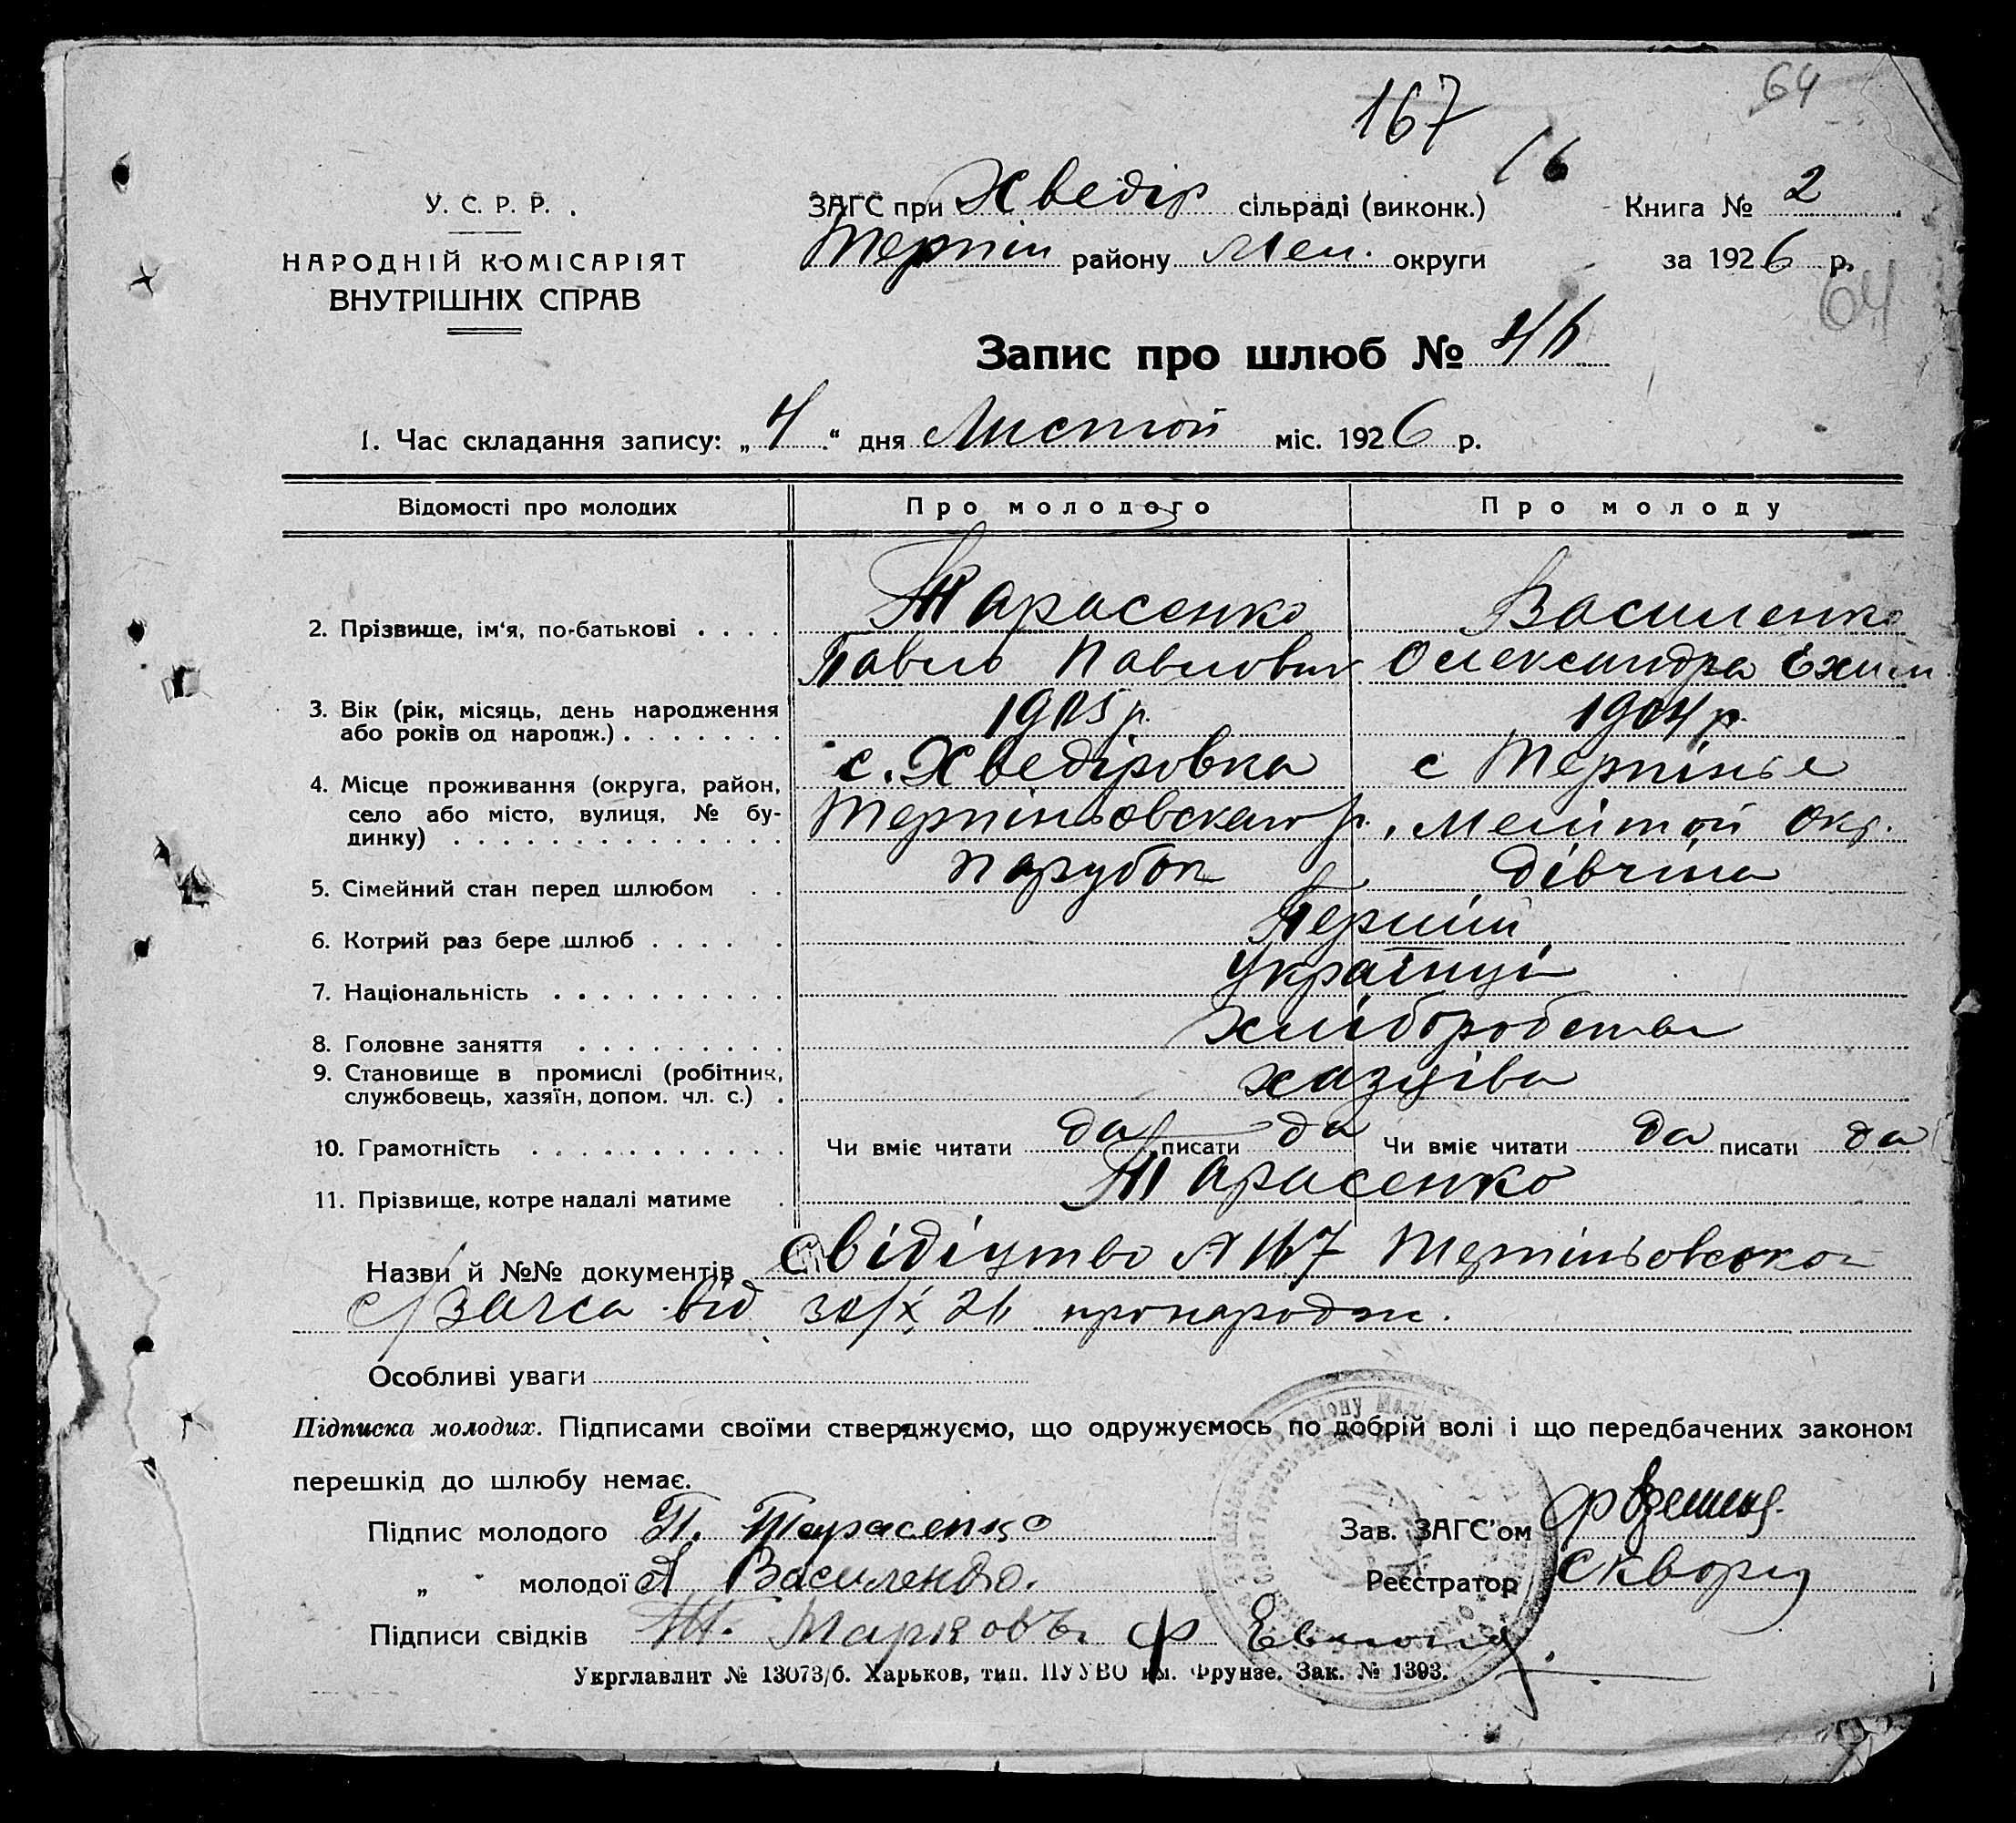 64
167
16
У. С. Р. Р.
НАРОДНІЙ КОМІСАРІЯТ
ВНУТРІШНІХ СПРАВ
ЗАГС при Хведір сільраді (виконк.)
Терпін району Мел. округи
Книга № 2
за 1926 р.
64
Запис про шлюб №
1. Час складання запису: „4“ дня Листоп міс. 1926 р.
Відомості про молодих Про молодого Про молоду
2. Прізвище, ім‘я, по-батькові . . . . Тарасенко Василенко
Павло Павлович Олександра Єхим
3. Вік (рік, місяць, день народження
або років од народж.) . . . . . . . 1905 р. 1904 р.
4. Місце проживання (округа, район, с. Хведіровка с Терпінье
село або місто, вулиця, № бу-
динку) . . . . . . . . . . . . . . Терпіньовскаго р. Меліто́п Окр.
5. Сімейний стан перед шлюбом . . парубок дівчина
6. Котрий раз бере шлюб . . . . . Перший
7. Національність . . . . . . . . . . Українці
8. Головне заняття . . . . . . . . . хліборобства
9. Становище в промислі (робітник,
службовець, хазяїн, допом. чл. с.) .
10. Грамотність . . . . . . . . . . . Чи вміє читати да писати да Чи вміє читати да писати да
11. Прізвище, котре надалі матиме . Тарасенко
Назви й №№ документів свідіцтво № 167 Терпіньовского
с/загса від 30/X 26 про народж.
Особливі уваги
Підписка молодих. Підписами своїми стверджуємо, що одружуємось по добрій волі і що передбачених законом
перешкід до шлюбу немає.
Підпис молодого П. Тарасенко Зав. ЗАГС’ом
„ молодої А Василенко. Реєстратор Скворц
Підписи свідків Т. Марковъ Ф
Укрглавлит № 13073/б. Харьков, тип. ПУУВО им. Фрунзе. Зак. № 1393.